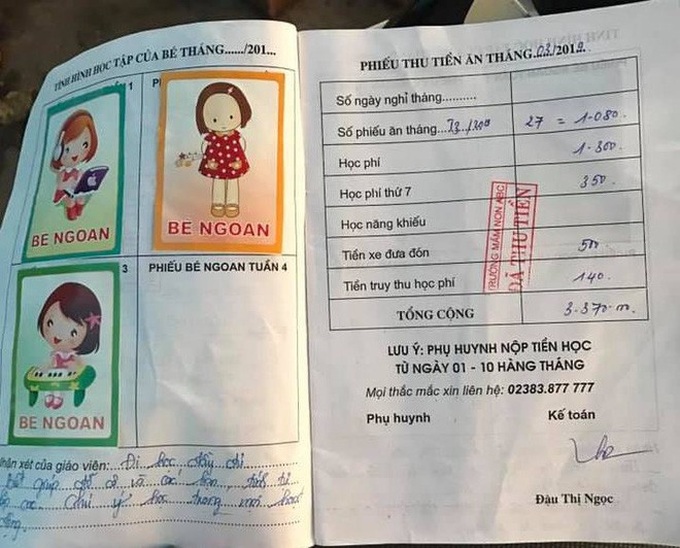 TÌNH HÌNH HỌC TẬP CỦA BÉ THÁNG....../201...
1
BÉ NGOAN
BÉ NGOAN
3
BÉ NGOAN
PHIẾU BÉ NGOAN TUẦN 4
nhận xét của giáo viên: Đi học đầy đủ
biết giúp đỡ cô và các bạn
chú ý học trong mọi hoạt
động
PHIẾU THU TIỀN ĂN THÁNG 03/2019
Số ngày nghỉ tháng..........
Số phiếu ăn tháng... 27 = 1.080.
Học phí 1.300.
Học phí thứ 7 350.
Học năng khiếu
Tiền xe đưa đón 500
Tiền truy thu học phí 140.
TỔNG CỘNG 3.370.m.
TRƯỜNG MẦM NON ABC
ĐÃ THU TIỀN
LƯU Ý: PHỤ HUYNH NỘP TIỀN HỌC
TỪ NGÀY 01 - 10 HÀNG THÁNG
Mọi thắc mắc xin liên hệ: 02383.877 777
Phụ huynh Kế toán
Đậu Thị Ngọc